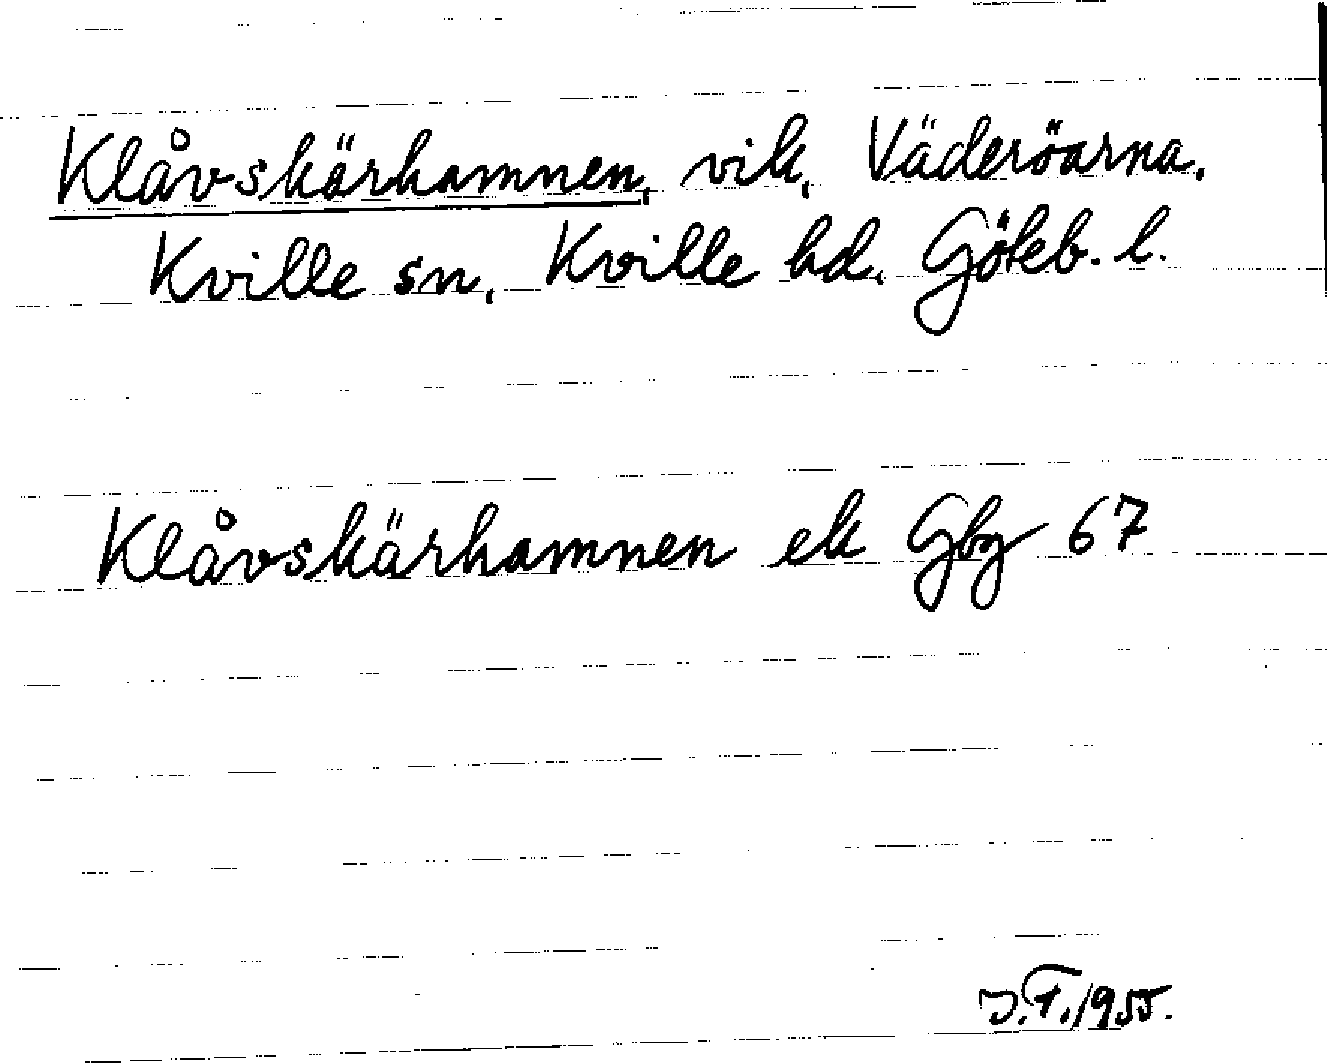 Klåvskärhamnen, vik, Väderöarna.
Kville sn, Kville hd. Göteb. l.
Klåvskärhamnen ek Gbg 67
J.T. 1955.